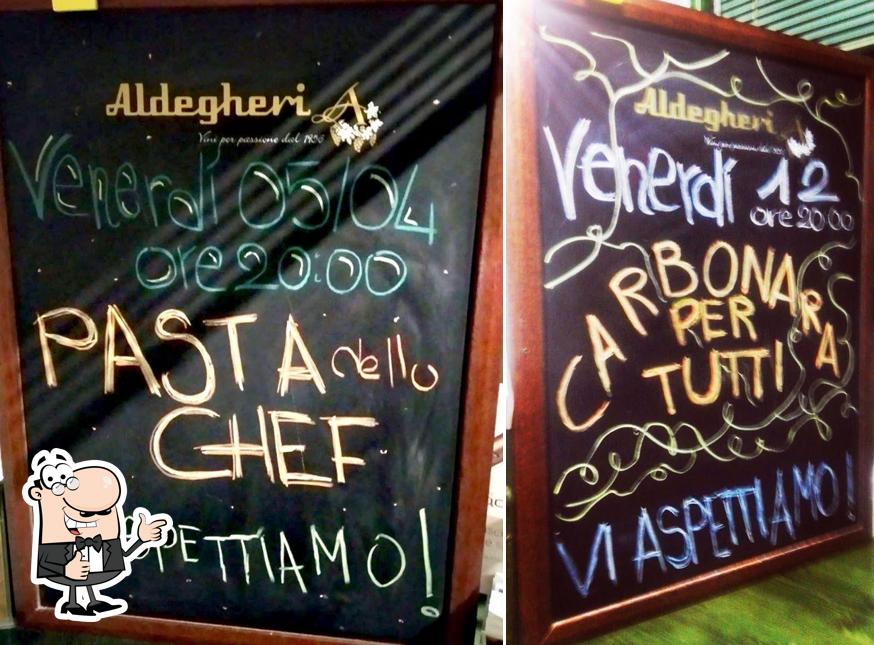 Aldegheri A
Vini per passione dal 1956
Venerdì 05/04
ore 20:00
PASTA dello
CHEF
PETTIAMO!
Aldegheri A
Venerdì 12
ore 20:00
CARBONARA
PER
TUTTI
VI ASPETTIAMO!